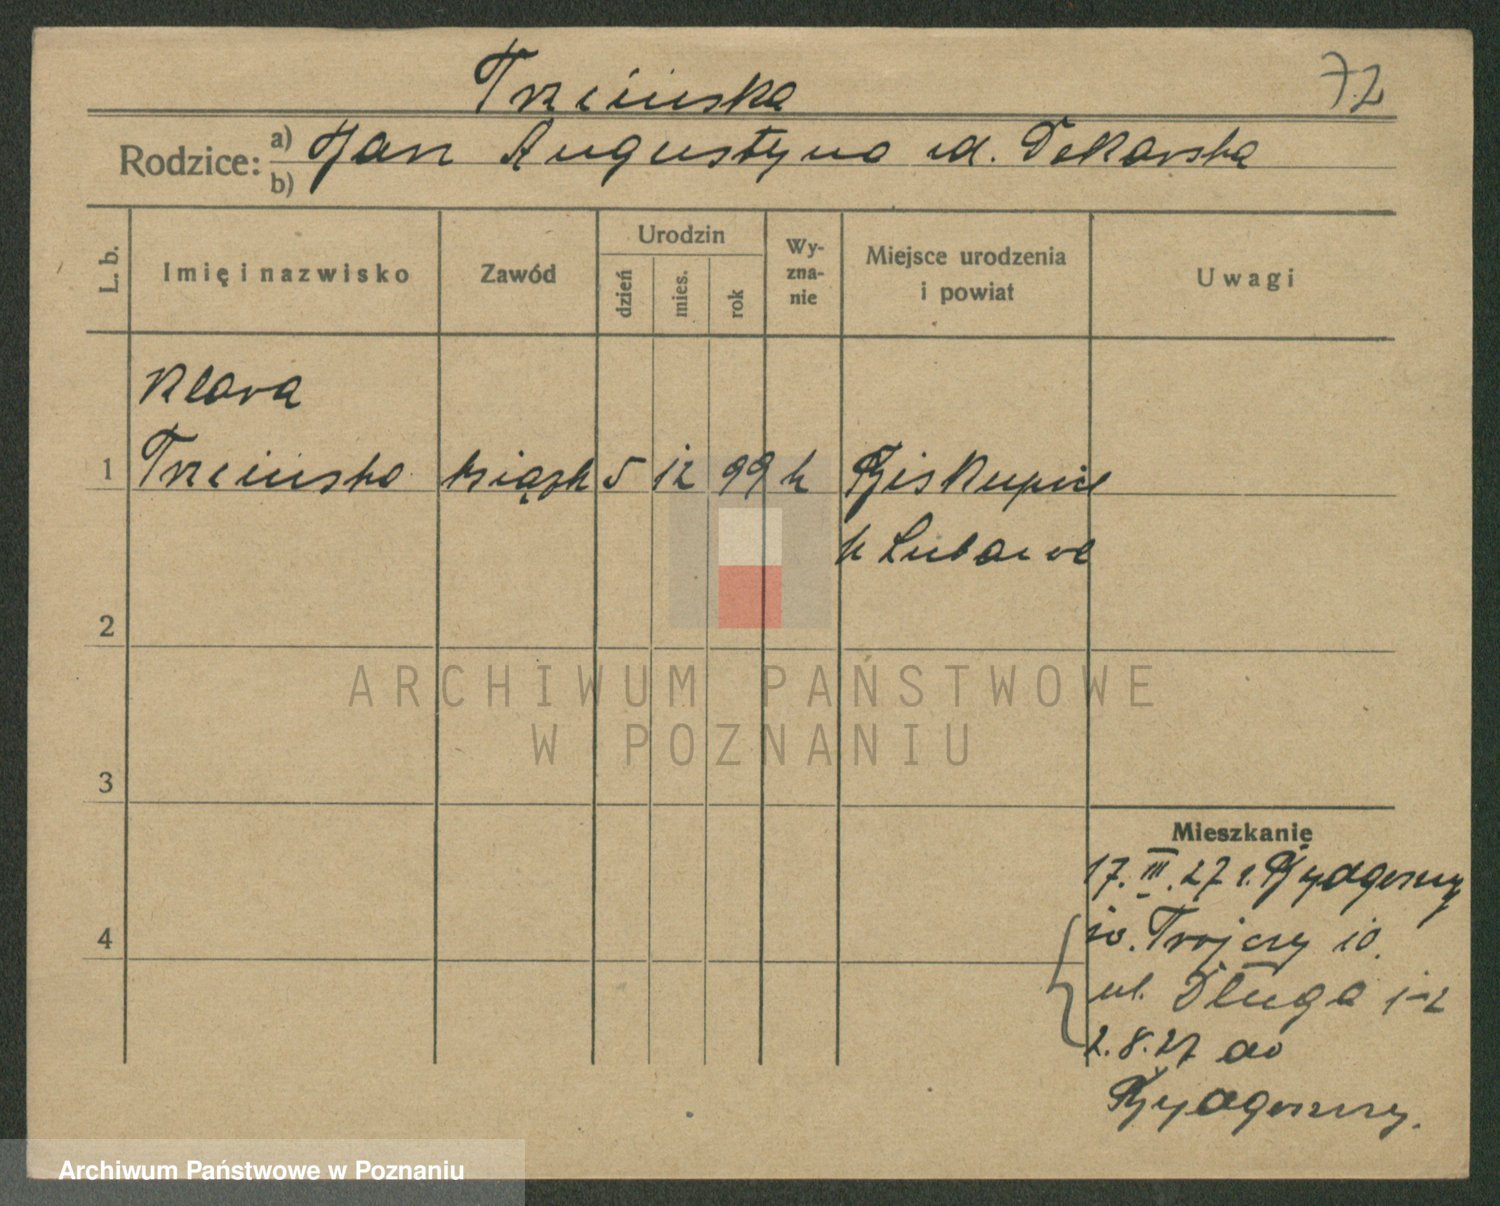 Trzcińska 72
Rodzice: a) Jan Augustyna id. Dekarska
b)
L. b. Imię i nazwisko Zawód Urodzin dzień mies. rok Wyznanie Miejsce urodzenia i powiat Uwagi
Klara
1 Trzcińska książk 5 12 99 k Biskupice
k Lubawa
2
3
4
Mieszkanie
17. III. 27 z. Bydgoszczy
św. Trojczy 10.
ul. Długa 1-2
2.8.27 do
Bydgoszczy.
ARCHIWUM PAŃSTWOWE
W POZNANIU
Archiwum Państwowe w Poznaniu